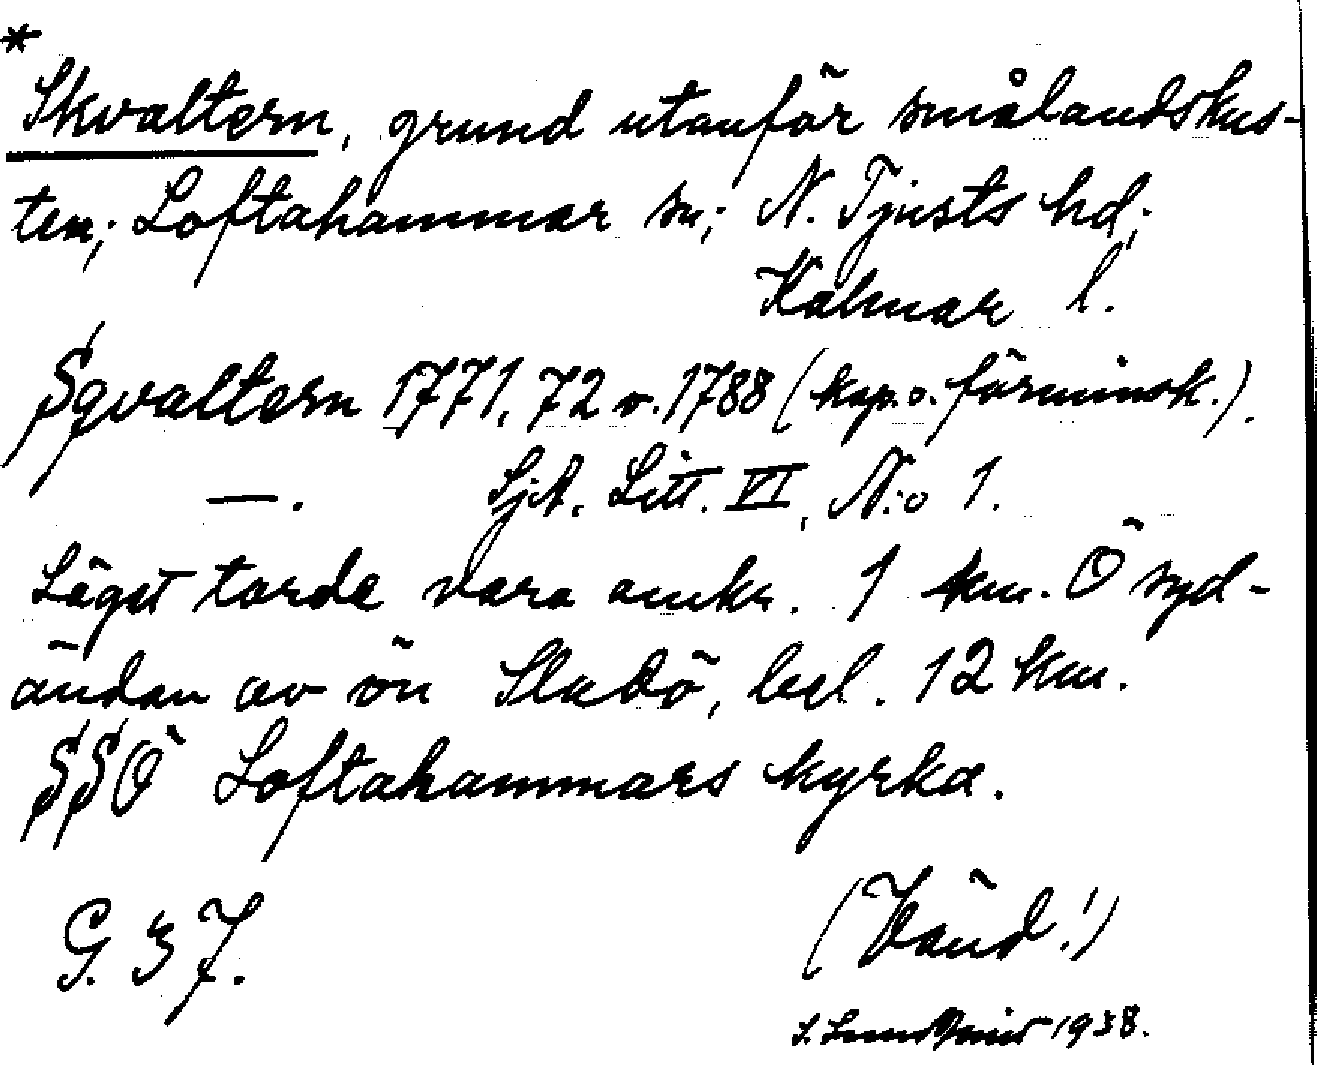 *
Skvaltern, grund utanför smålandskus-
ten; Loftahammar sn; N. Tjusts hd;
Kalmar l.
Sqvaltern 1771, 72 o. 1788 (kop. o. förminsk.).
—. SjA. Litt. VI, N:o 1.
Läget torde vara omkr. 1 km. Ö syd-
ändan av ön Sladö, bel. 12 km.
SSÖ Loftahammars kyrka.
G. 37. (Vänd!)
1938.